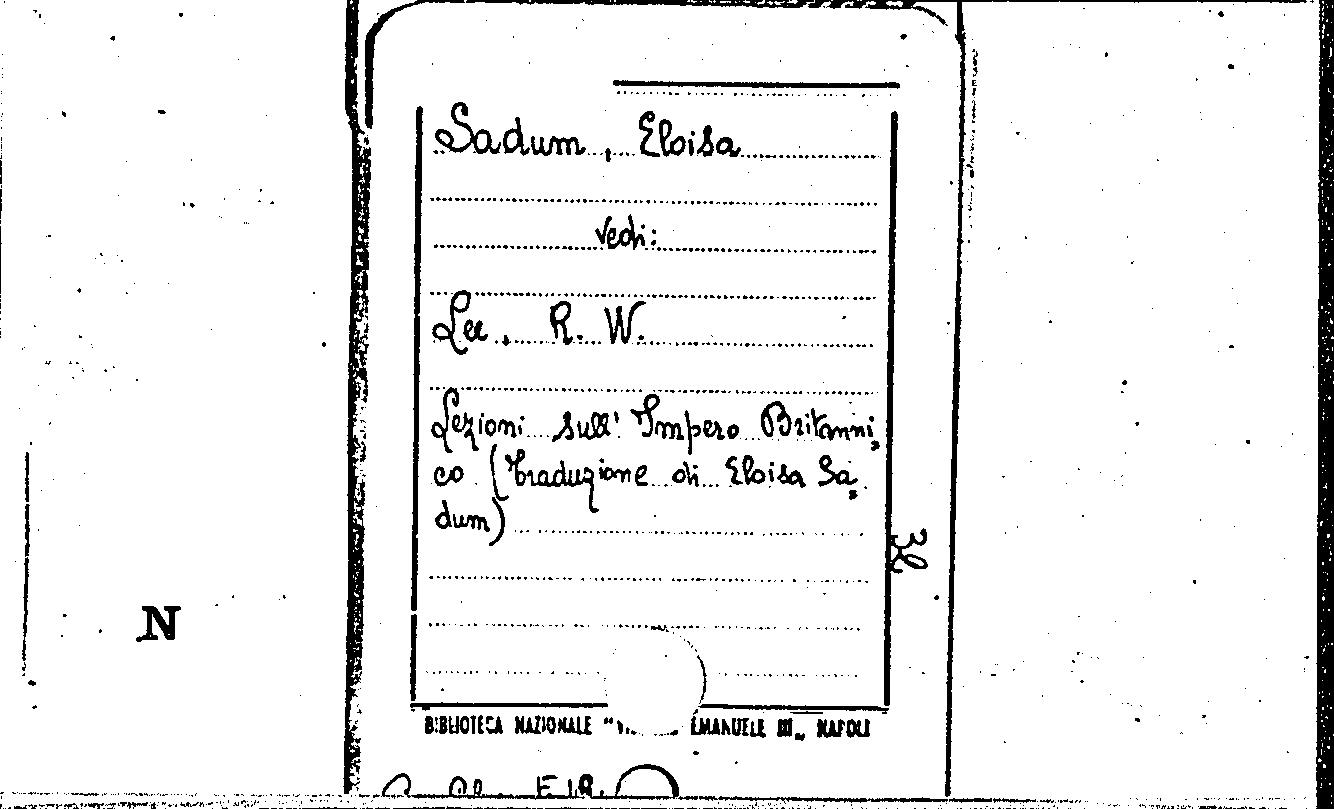 Sadum, Eloisa
vedi:
Lee, R. W.
Lezioni sull' Impero Britanni=
co (Traduzione di Eloisa Sa=
dum)
N
BIBLIOTECA NAZIONALE " EMANUELE III„ NAPOLI